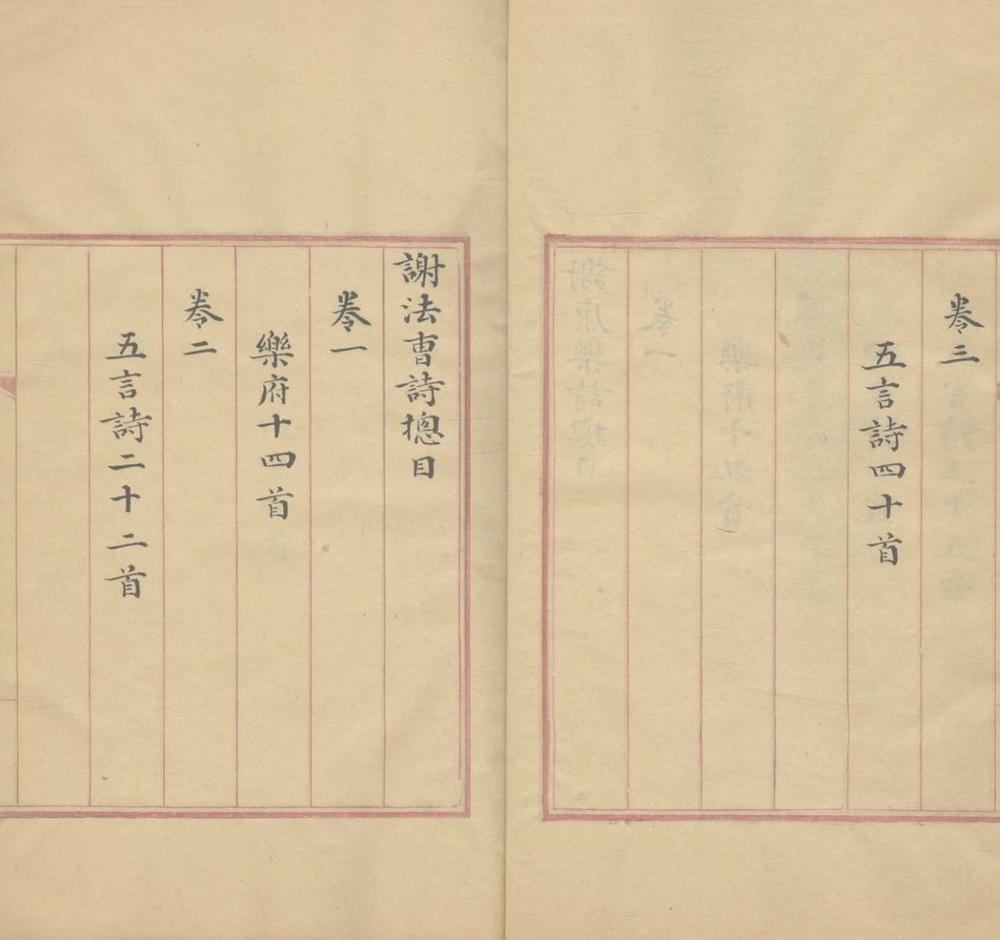 卷三
五言詩四十首
謝法曹詩總目
卷一
樂府十四首
卷二
五言詩二十二首